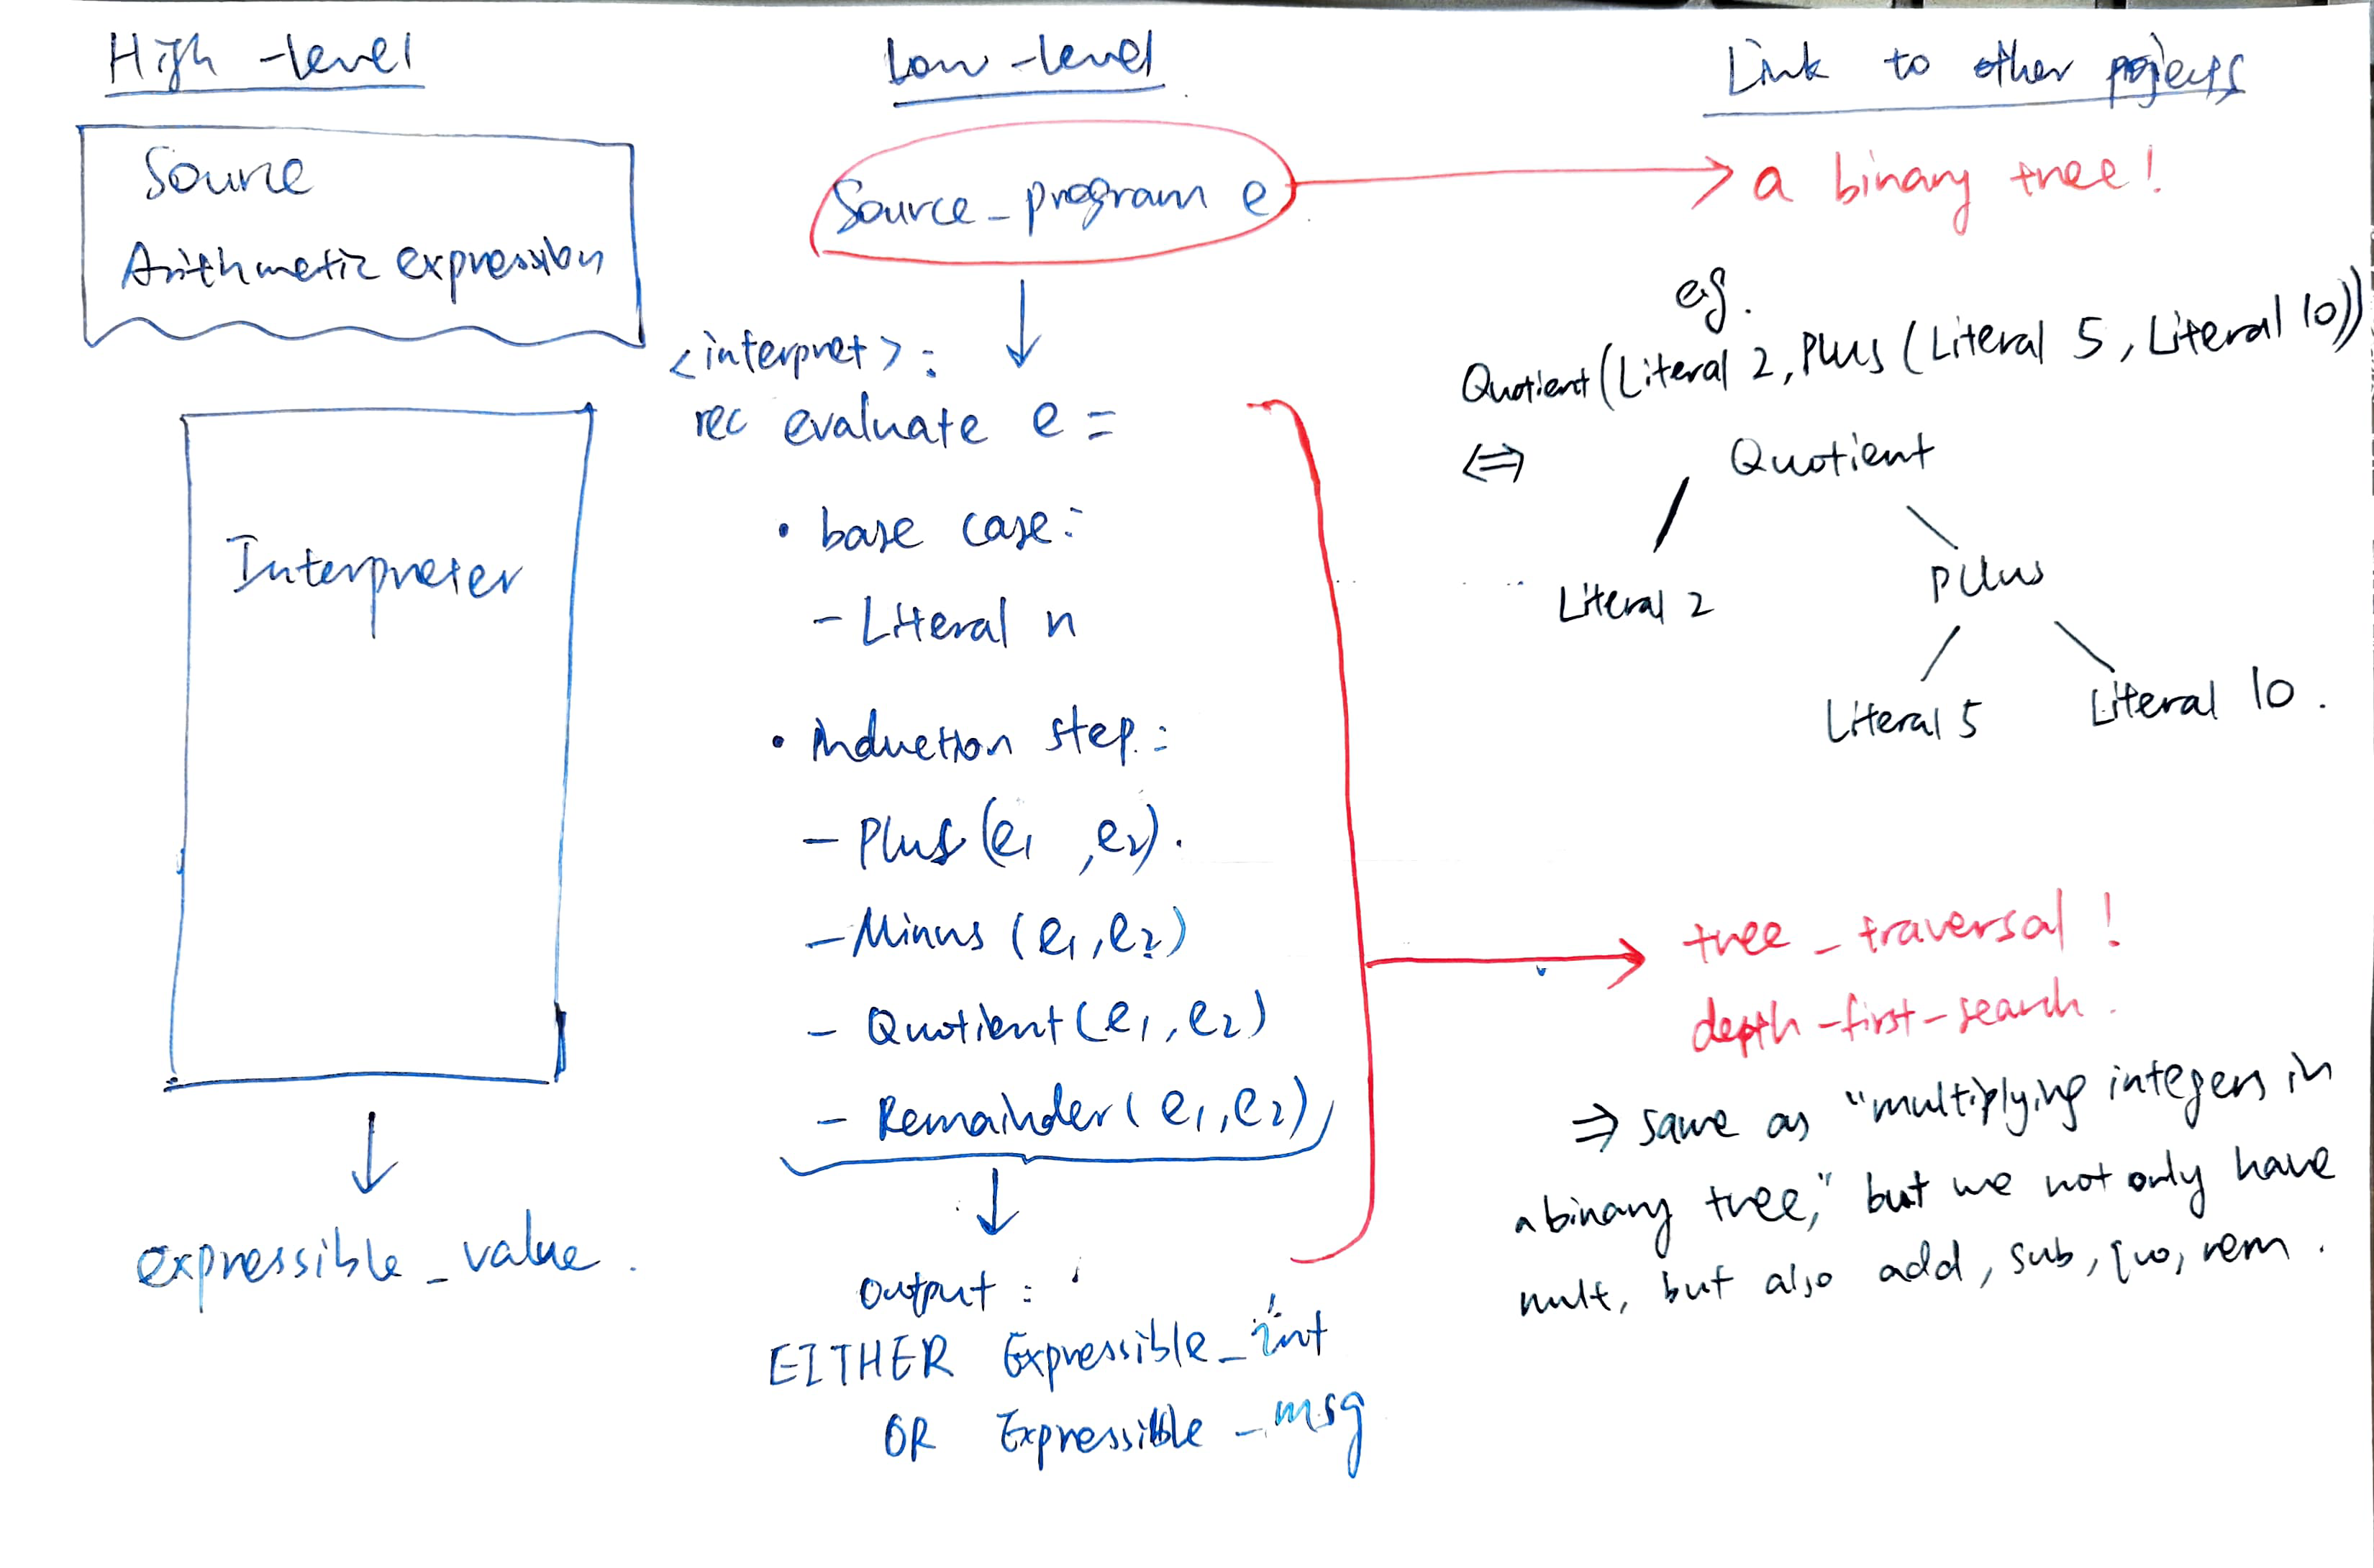 High-level
Source
Arithmetic expression
Interpreter
expressible_value.
Low-level
Source_program e
<interpret>:
rec evaluate e =
• base case:
- Literal n
• induction step:
- Plus(e1, e2).
- Minus (e1, e2)
- Quotient(e1, e2)
- Remainder(e1, e2)
Output:
EITHER Expressible_int
OR Expressible_msg
Link to other projects
a binary tree!
eg.
Quotient(Literal 2, Plus (Literal 5, Literal 10))
⇔ Quotient
Literal 2 Plus
Literal 5 Literal 10.
tree_traversal!
depth-first-search.
⇒ same as "multiplying integers in
a binary tree," but we not only have
mult, but also add, sub, quo, rem.